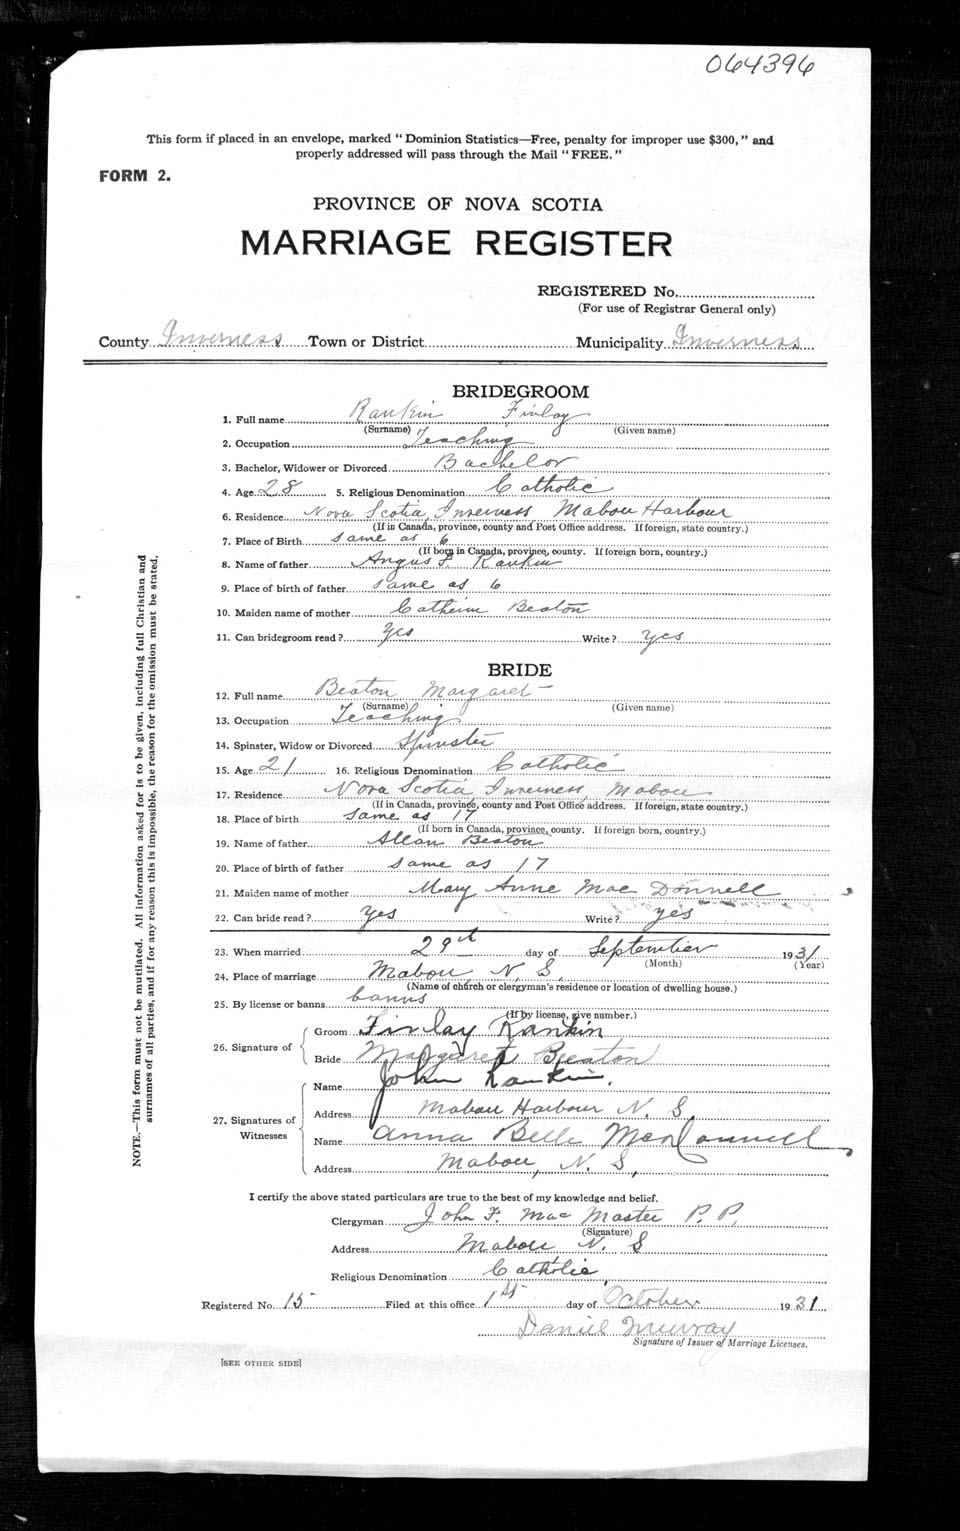 064396
This form if placed in an envelope, marked "Dominion Statistics—Free, penalty for improper use $300," and
properly addressed will pass through the Mail "FREE."
FORM 2.
PROVINCE OF NOVA SCOTIA
MARRIAGE REGISTER
REGISTERED No.
(For use of Registrar General only)
County Inverness Town or District Municipality Inverness
BRIDEGROOM
1. Full name Rankin Finlay
(Surname) (Given name)
2. Occupation Teaching
3. Bachelor, Widower or Divorced Bachelor
4. Age 28 5. Religious Denomination Catholic
6. Residence Nova Scotia, Inverness Mabou Harbour
(If in Canada, province, county and Post Office address. If foreign, state country.)
7. Place of Birth same as 6
(If born in Canada, province, county. If foreign born, country.)
8. Name of father Angus F. Rankin
9. Place of birth of father same as 6
10. Maiden name of mother Catherin Beaton
11. Can bridegroom read? Yes Write? Yes
BRIDE
12. Full name Beaton Margaret
(Surname) (Given name)
13. Occupation Teaching
14. Spinster, Widow or Divorced Spinster
15. Age 21 16. Religious Denomination Catholic
17. Residence Nova Scotia, Inverness, Mabou
(If in Canada, province, county and Post Office address. If foreign, state country.)
18. Place of birth same as 17
(If born in Canada, province, county. If foreign born, country.)
19. Name of father Allan Beaton
20. Place of birth of father same as 17
21. Maiden name of mother Mary Anne Mac Donnell
22. Can bride read? Yes Write? Yes
23. When married 29th day of September 1931
(Month) (Year)
24. Place of marriage Mabou, N. S.
(Name of church or clergyman's residence or location of dwelling house.)
25. By license or banns banns
(If by license, give number.)
26. Signature of Groom Finlay Rankin
Bride Margaret Beaton
27. Signatures of Witnesses Name John Rankin.
Address Mabou Harbour N. S.
Name Anna Belle MacDonnell
Address Mabou, N. S,
I certify the above stated particulars are true to the best of my knowledge and belief.
Clergyman John F. Mac Master P. P.
(Signature)
Address Mabou N. S
Religious Denomination Catholic
Registered No. 15 Filed at this office 1st day of October 1931
Daniel Murray
Signature of Issuer of Marriage Licenses.
[SEE OTHER SIDE]
NOTE.—This form must not be mutilated. All information asked for is to be given, including full Christian and
surnames of all parties, and if for any reason this is impossible, the reason for the omission must be stated.